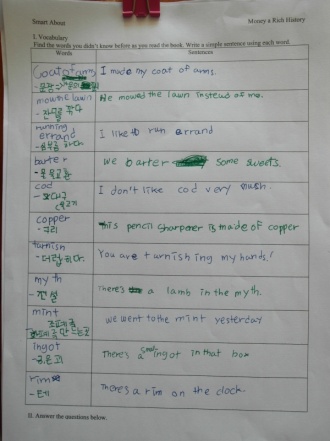 Smart About
Money a Rich History
I. Vocabulary
Find the words you didn't know before as you read the book. Write a simple sentence using each word.
Words
Sentences
Coat of arms
I made my coat of arms.
mow the lawn
- 잔디를 깎다
We mowed the lawn instead of me.
running errand
I like to run errand
barter
- 물물교환
We barter some sweets.
cod
- 대구
I don't like cod very much.
copper
- 구리
this pencil sharpener is made of copper
turnish
- 더럽히다.
You are turnishing my hands!
myth
- 전설
There's a lamb in the myth.
mint
we went to the mint yesterday
ingot
There's a small ingot in that box
rim
- 테
There's a rim on the clock.
II. Answer the questions below.